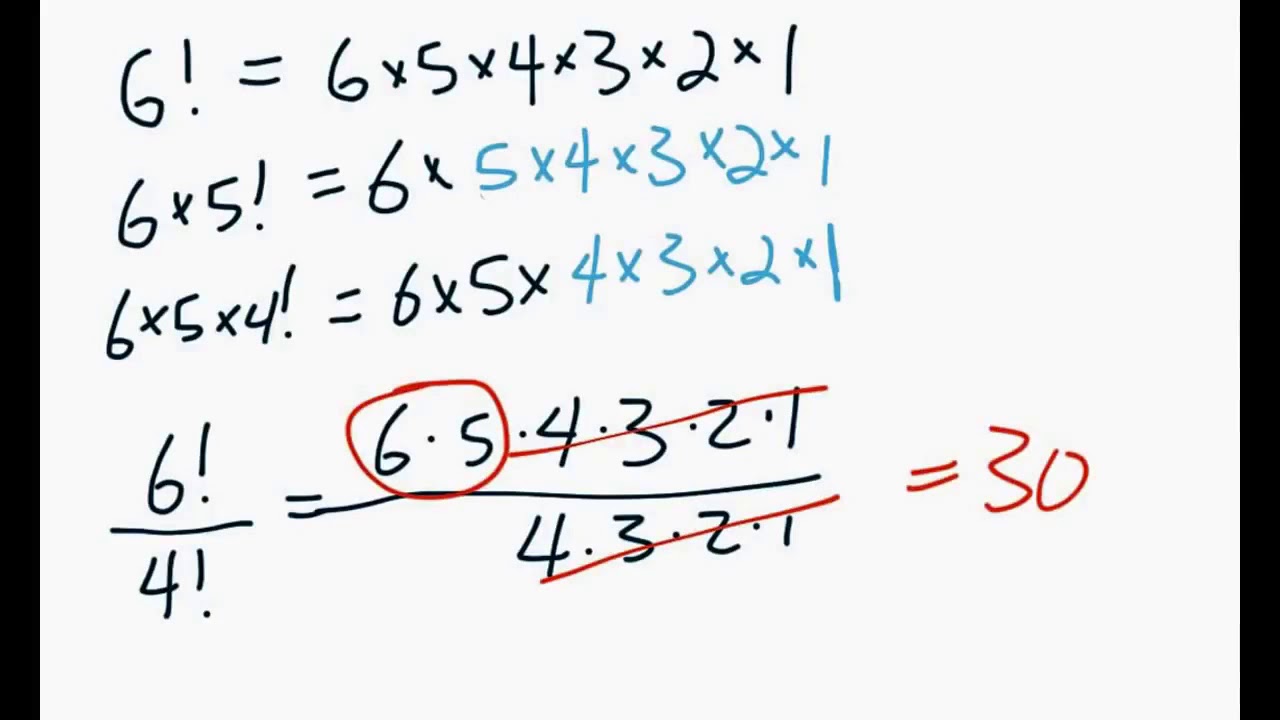 6! = 6×5×4×3×2×1
6×5! = 6×5×4×3×2×1
6×5×4! = 6×5×4×3×2×1
6!/4! = 6·5·4·3·2·1/4·3·2·1 = 30